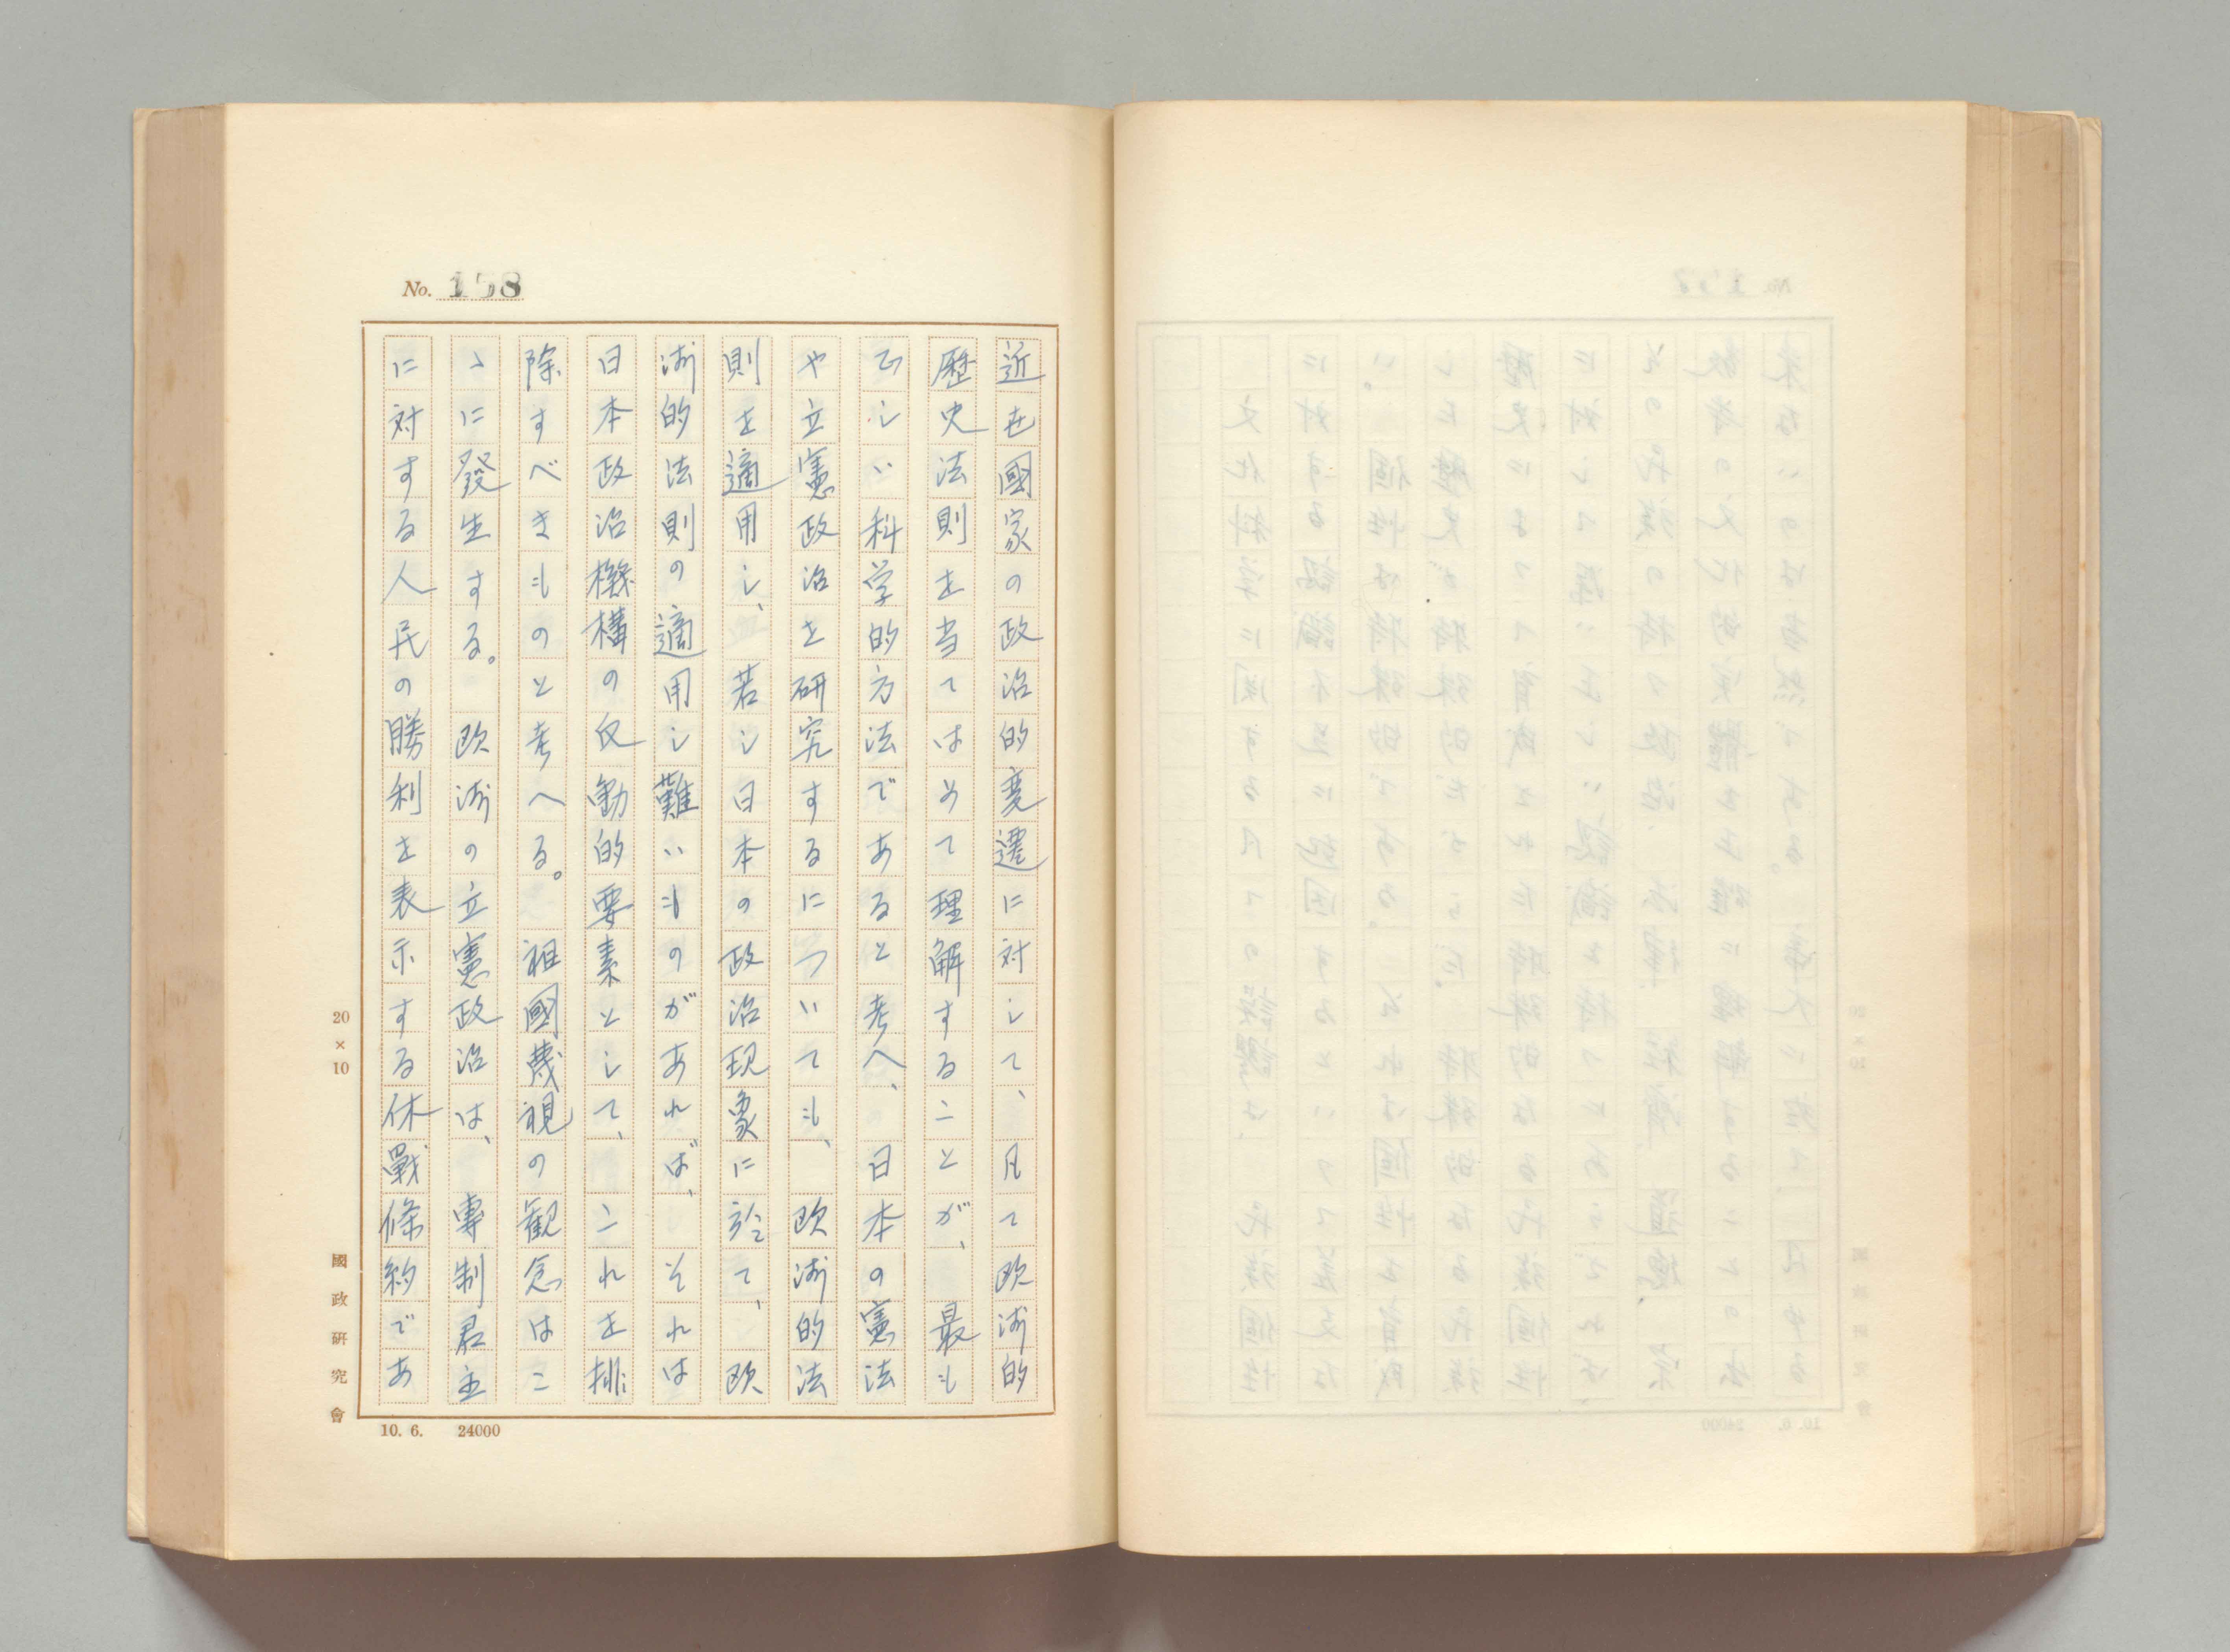 No. 158
近世國家の政治的変遷に対して、凡て欧洲的
歴史法則を当てはめて理解することが、最も
正しい科学的方法であると考へ、日本の憲法
や立憲政治を研究するについても、欧洲的法
則を適用し、若し日本の政治現象に於て、欧
洲的法則の適用し難いものがあれば、それは
日本政治機構の反動的要素として、これを排
除すべきものと考へる。祖國蔑視の観念はこ
ゝに發生する。欧洲の立憲政治は、専制君主
に対する人民の勝利を表示する休戰條約であ
20×10
國政研究會
10. 6. 24000